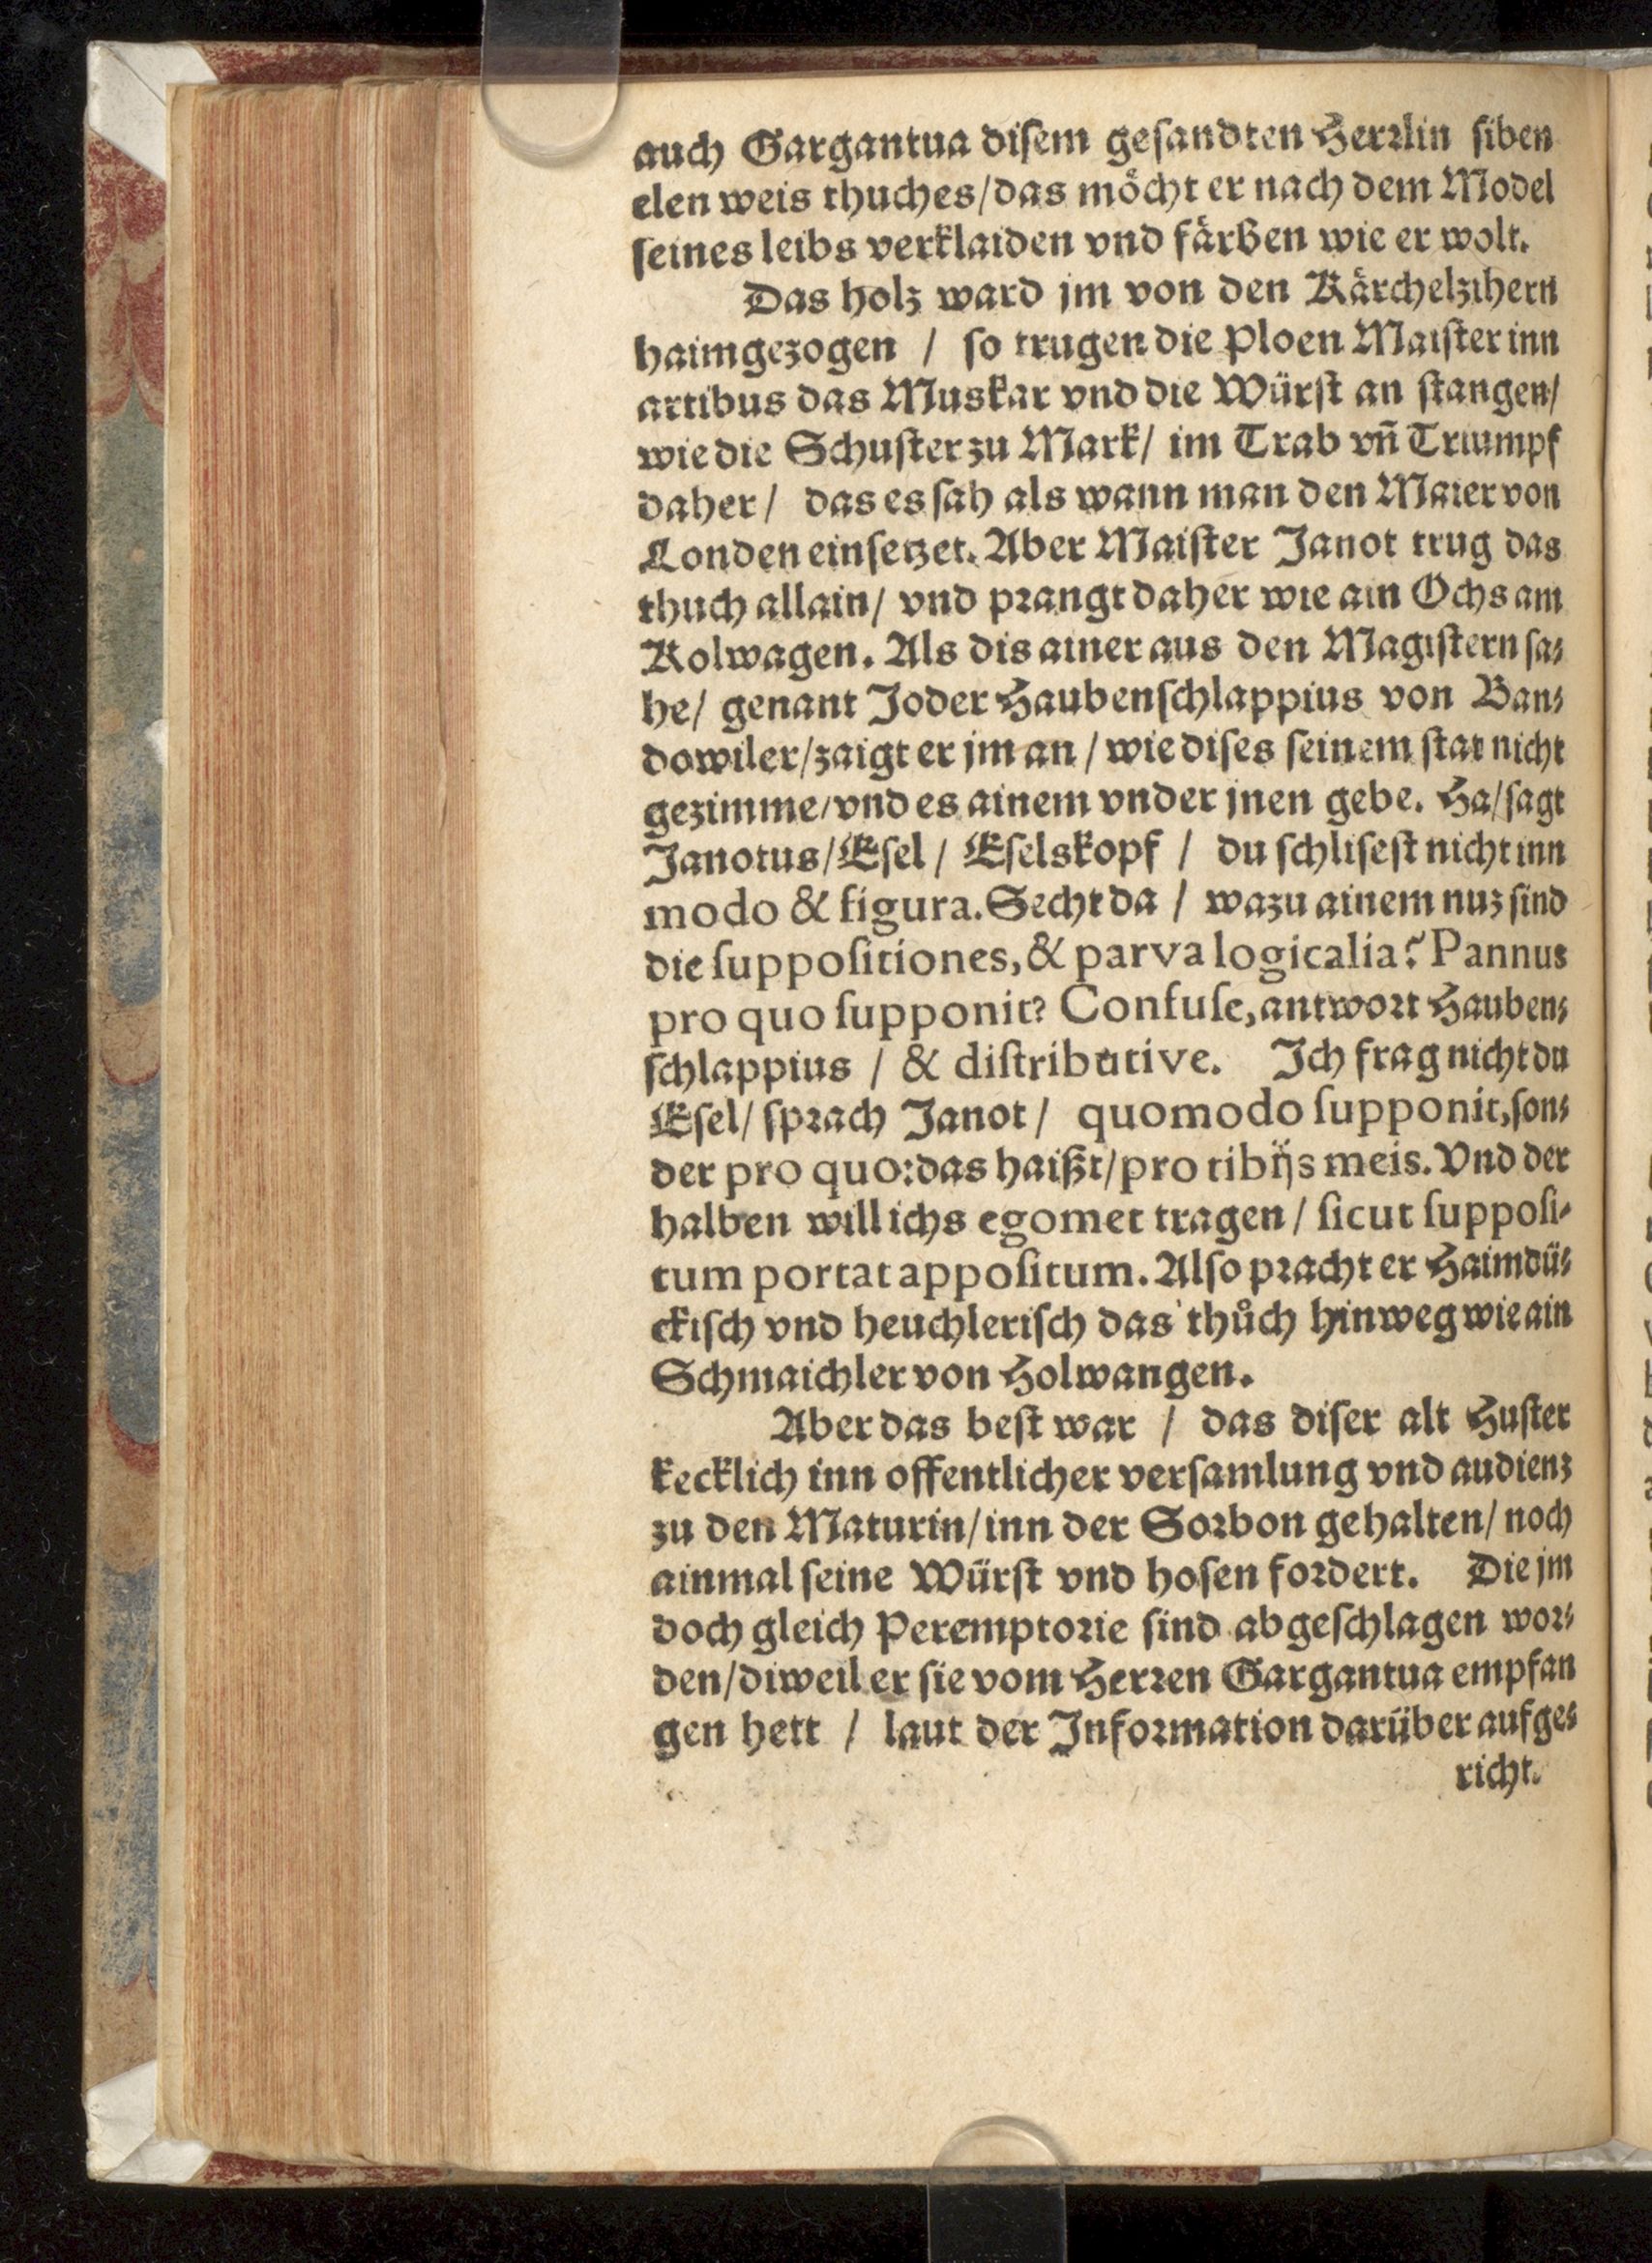 auch Gargantua disem gesandten Herrlin siben
elen weis thuches/das möcht er nach dem Model
seines leibs verklaiden vnd färben wie er wolt.
Das holz ward jm von den Kärchelzihern
haimgezogen / so trugen die Ploen Maister inn
artibus das Muskar vnd die Würst an stangen/
wie die Schuster zu Mark/ im Trab vñ Triumpf
daher/ das es sah als wann man den Maier von
Londen einsetzet. Aber Maister Janot trug das
thuch allain/ vnd prangt daher wie ain Ochs am
Kolwagen. Als dis ainer aus den Magistern sa⸗
he/ genant Joder Haubenschlappius von Ban⸗
dowiler/zaigt er jm an / wie dises seinem stat nicht
gezimme/vnd es ainem vnder jnen gebe. Ha/sagt
Janotus/Esel / Eselskopf / du schlisest nicht inn
modo & figura. Secht da / wazu ainem nuz sind
die suppositiones, & parva logicalia? Pannus
pro quo supponit? Confuse, antwort Hauben⸗
schlappius / & distributive. Ich frag nicht du
Esel/ sprach Janot/ quomodo supponit, son⸗
der pro quo: das haißt/pro tibijs meis. Vnd der
halben will ichs egomet tragen / sicut supposi⸗
tum portat appositum. Also pracht er Haimdü⸗
ckisch vnd heuchlerisch das thůch hinweg wie ain
Schmaichler von Holwangen.
Aber das best war / das diser alt Huster
kecklich inn offentlicher versamlung vnd audienz
zu den Maturin/inn der Sorbon gehalten/ noch
ainmal seine Würst vnd hosen fordert. Die jm
doch gleich Peremptorie sind abgeschlagen wor⸗
den/diweil er sie vom Herren Gargantua empfan
gen hett / laut der Information darüber aufge⸗
richt.